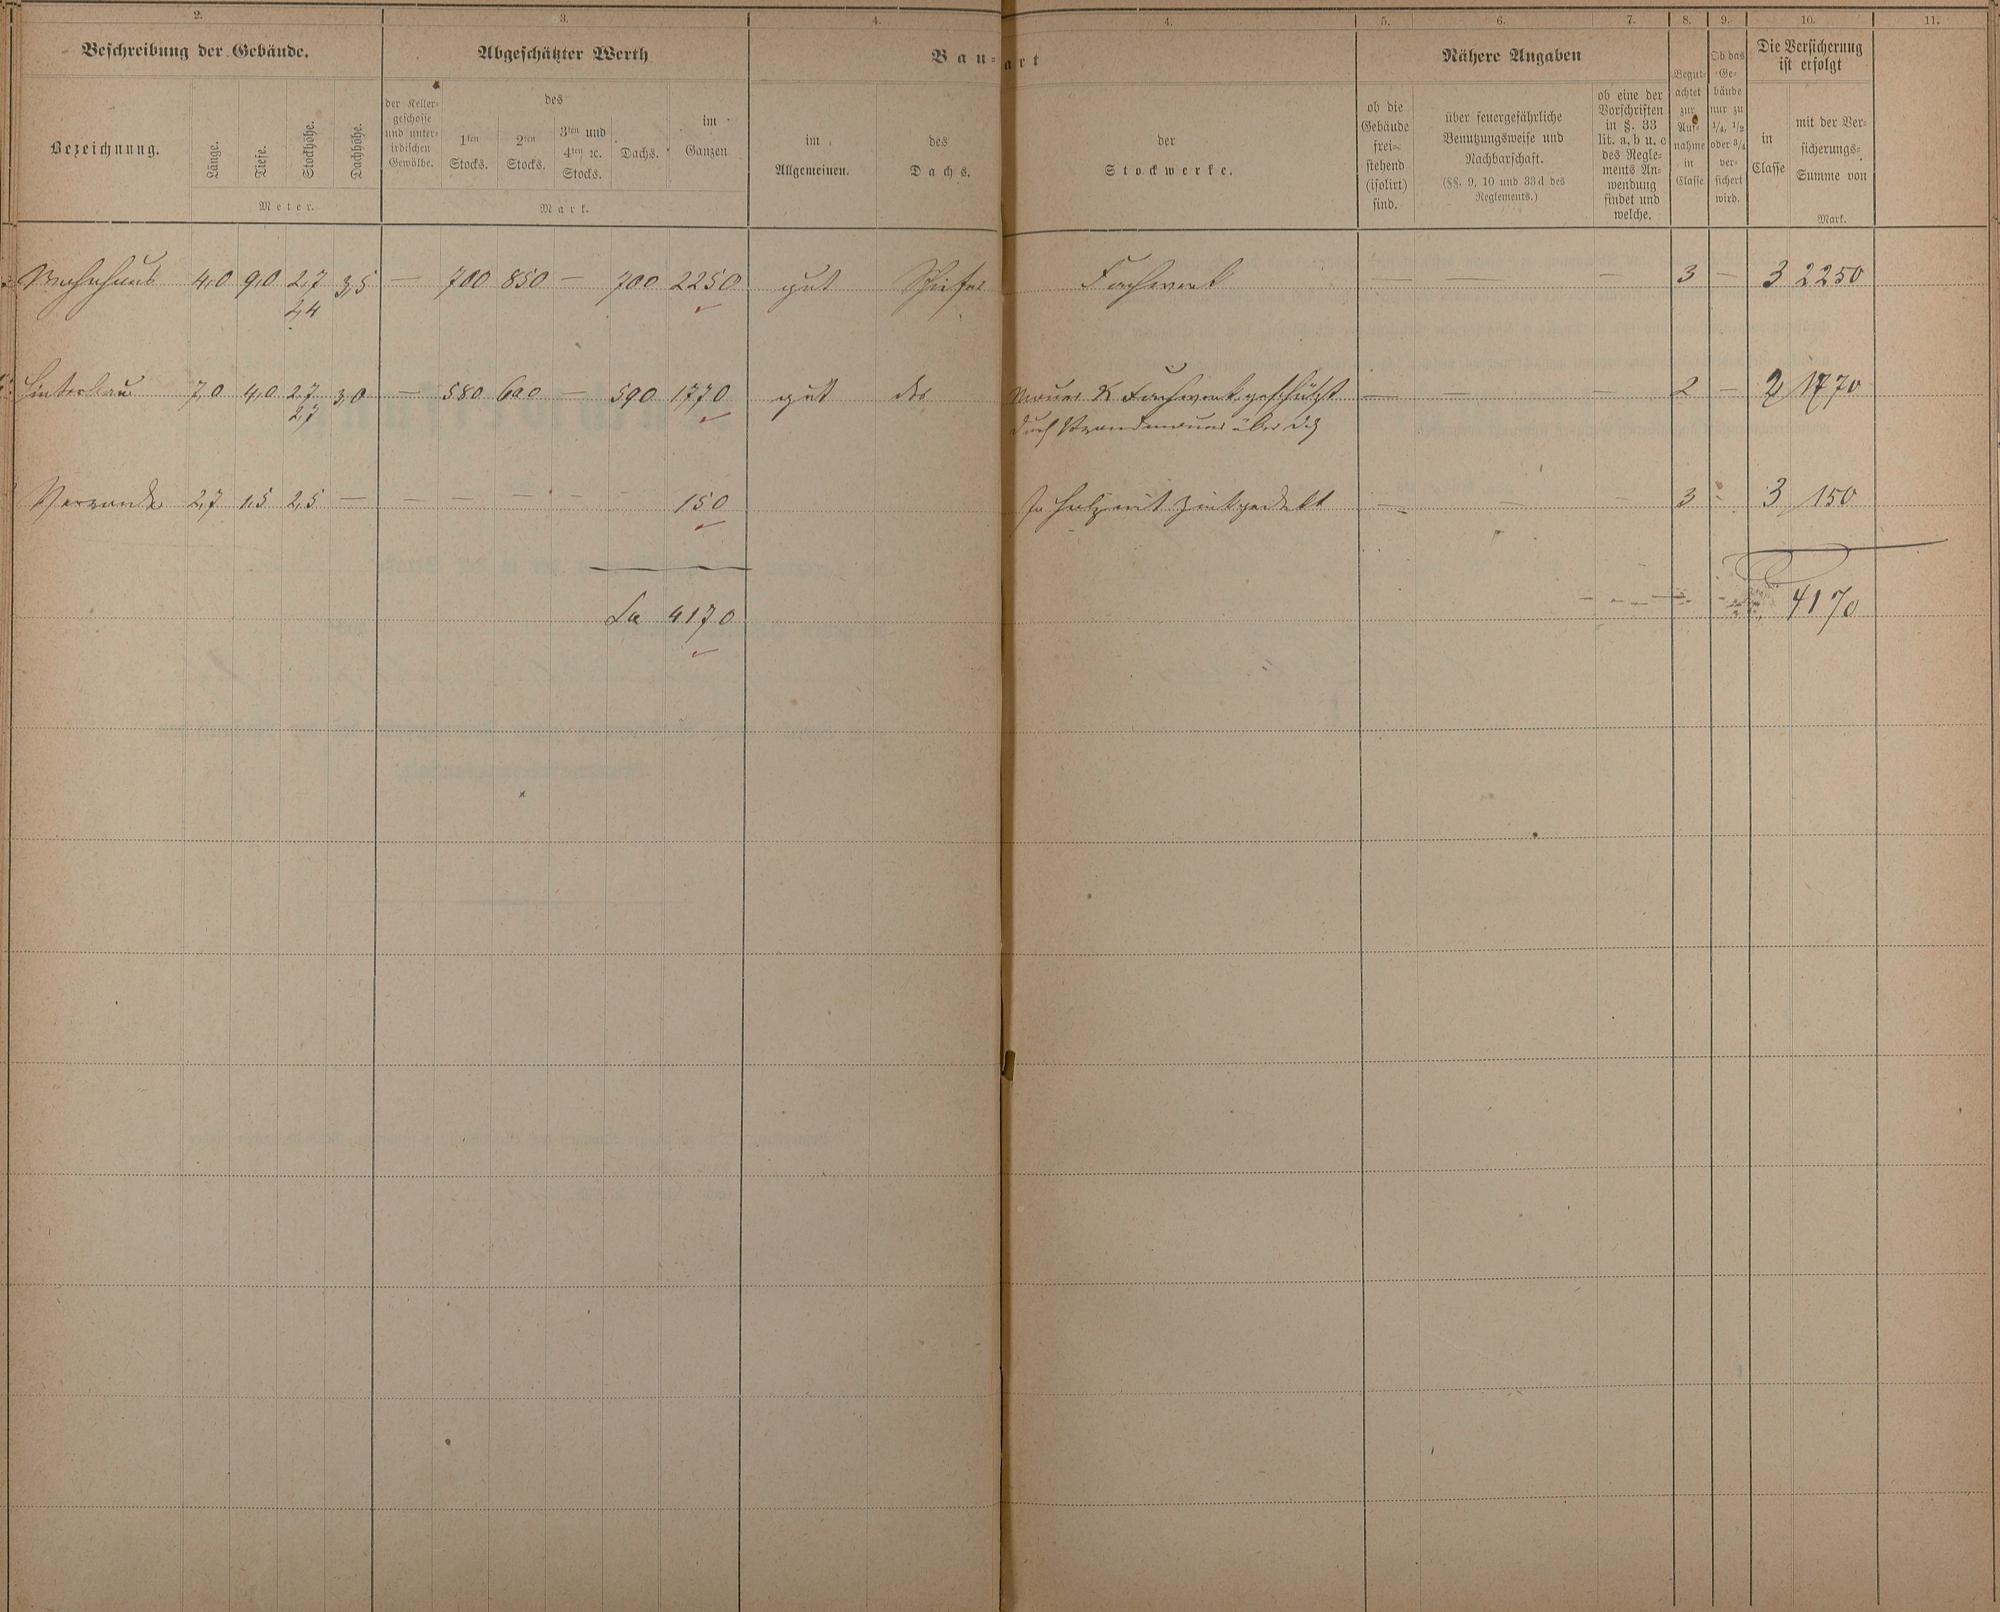 2. 3. 4. 4. 5. 6. 7. 8. 9. 10. 11.
Beschreibung der Gebäude.
Abgeschätzter Werth
Bau-art
Nähere Angaben
Bezeichnung.
Länge.
Tiefe.
Stockhöhe.
Dachhöhe.
Meter.
der Keller-
geschosse
und unter-
irdischen
Gewölbe.
des
1ten
Stocks.
2ten
Stocks.
3ten und
4ten ꝛc.
Stocks.
Dachs.
im
Ganzen
Mark.
im
Allgemeinen.
des
Dachs.
der
Stockwerke.
ob die
Gebäude
frei-
stehend
(isolirt)
sind.
über feuergefährliche
Benutzungsweise und
Nachbarschaft.
(§§. 9, 10 und 33 d des
Reglements.)
ob eine der
Vorschriften
in §. 33
lit. a, b u. c
des Regle-
ments An-
wendung
findet und
welche.
Begut-
achtet
zur
Auf-
nahme
in
Classe
Ob das
Ge-
bäude
nur zu
1/4, 1/2
oder 3/4
ver-
sichert
wird.
Die Versicherung
ist erfolgt
in
Classe
mit der Ver-
sicherungs-
Summe von
Mark.
Wohnhaus 4,0 9,0 2,7 3,5 — 700 850 — 700 2250 gut Schiefer Fachwerk — — — 3 — 3 2250
2,4
Hinterbau 7,0 4,0 2,7 3,0 — 580 600 — 590 1770 gut des Mauer & Fachwerk geschützt — — — 2 — 2 1770
2,7
durch Brandmauer über Dch
Veranda 2,7 1,5 2,5 — — — — — — 150 In Holz mit Zink gedekt — — — 3 - 3 150
Sa 4170
4170